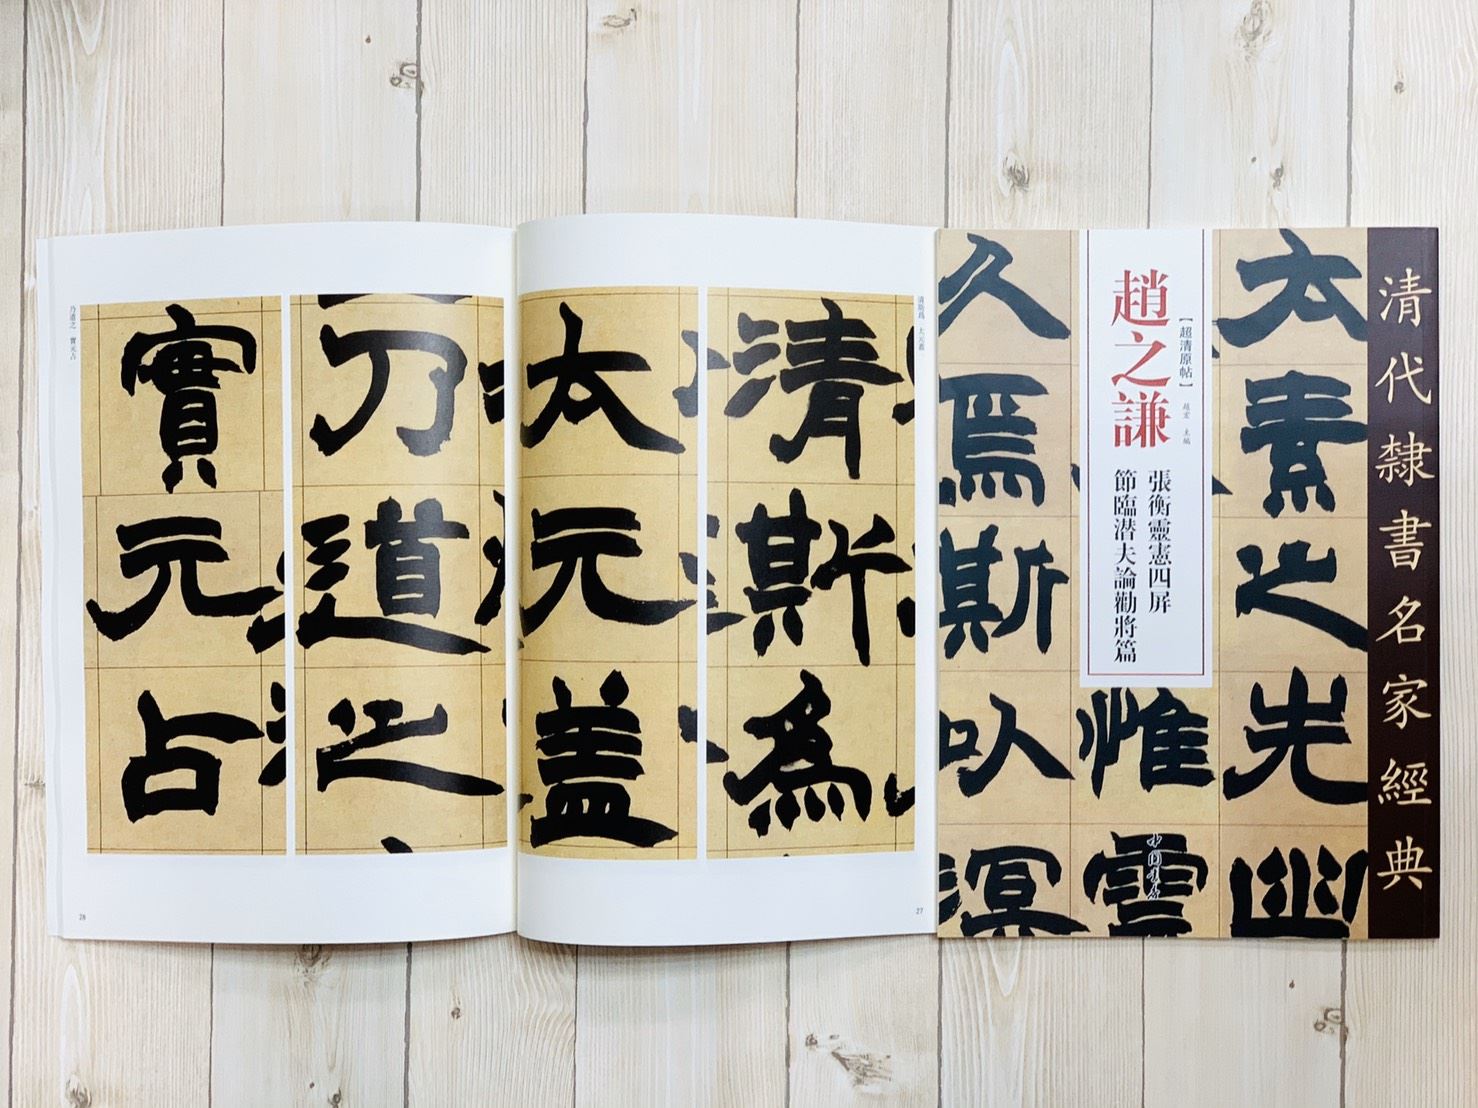 清代隸書名家經典
【超清原帖】
趙宏 主編
趙之謙
張衡靈憲四屏
節臨潛夫論勸將篇
太素之先幽
惟靈
久焉斯以溟
中國書店
清斯爲 太元蓋
清斯爲
太元盖
27
乃道之
實元占
乃道之 實元占
28